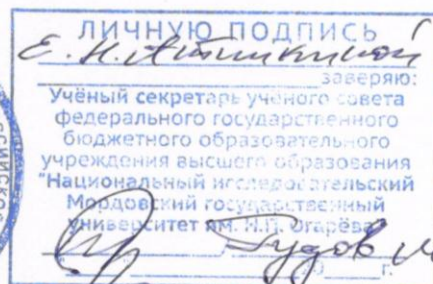 ЛИЧНУЮ ПОДПИСЬ
Е. Н. Атишкиной
заверяю:
Учёный секретарь учёного совета
федерального государственного
бюджетного образовательного
учреждения высшего образования
"Национальный исследовательский
Мордовский государственный
университет им. Н.П. Огарёва"
Гудов
20 г.